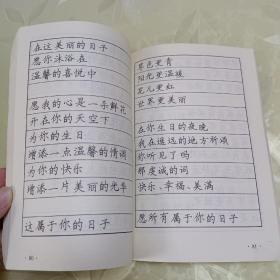 在这美丽的日子
愿你沐浴在
温馨的喜悦中
愿我的心是一朵鲜花
开在你的天空下
为你的生日
增添一点温馨的情调
为你的快乐
增添一片美丽的光华
这属于你的日子
80
草色更青
阳光更温暖
花儿更红
世界更美丽
在你生日的夜晚
我在遥远的地方祈颂
你听见了吗
那虔诚的词
快乐、幸福、美满
愿所有属于你的日子
81